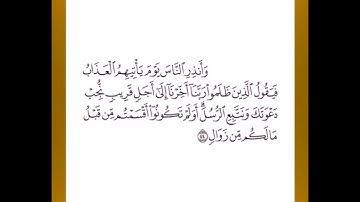 وَأَنذِرِ ٱلنَّاسَ يَوۡمَ يَأۡتِيهِمُ ٱلۡعَذَابُ
فَيَقُولُ ٱلَّذِينَ ظَلَمُواْ رَبَّنَآ أَخِّرۡنَآ إِلَىٰٓ أَجَلٖ قَرِيبٖ نُّجِبۡ
دَعۡوَتَكَ وَنَتَّبِعِ ٱلرُّسُلَۗ أَوَلَمۡ تَكُونُوٓاْ أَقۡسَمۡتُم مِّن قَبۡلُ
مَا لَكُم مِّن زَوَالٖ ٤٤